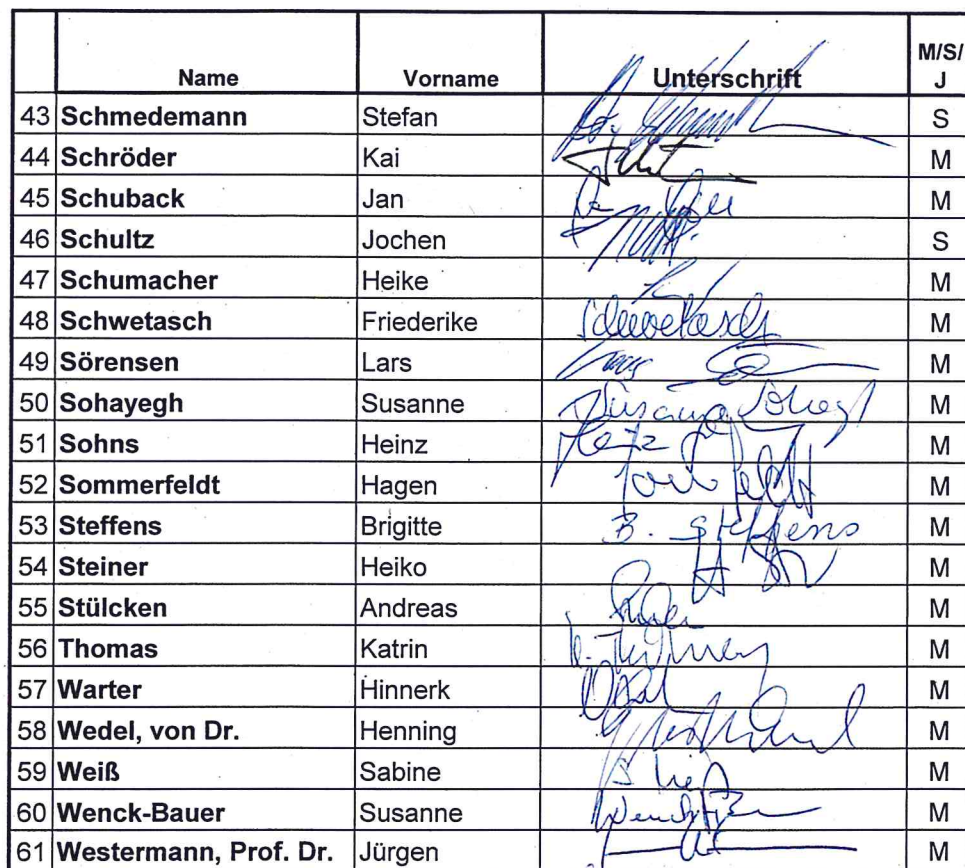 Name Vorname Unterschrift M/S/
J
43 Schmedemann Stefan S
44 Schröder Kai M
45 Schuback Jan M
46 Schultz Jochen S
47 Schumacher Heike M
48 Schwetasch Friederike Schwetasch M
49 Sörensen Lars M
50 Sohayegh Susanne Susanne M
51 Sohns Heinz Heinz M
52 Sommerfeldt Hagen M
53 Steffens Brigitte B. Steffens M
54 Steiner Heiko M
55 Stülcken Andreas M
56 Thomas Katrin M
57 Warter Hinnerk M
58 Wedel, von Dr. Henning M
59 Weiß Sabine M
60 Wenck-Bauer Susanne M
61 Westermann, Prof. Dr. Jürgen M